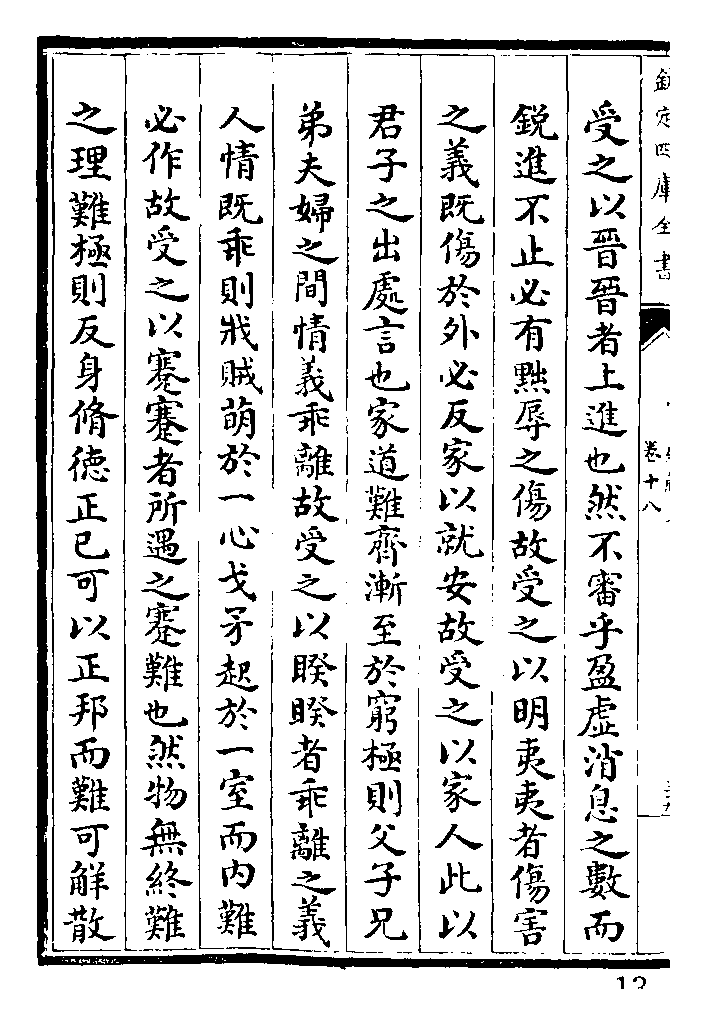 欽定四庫全書
卷十八
受之以晉晉者上進也然不審乎盈虛消息之數而
鋭進不止必有黜辱之傷故受之以明夷夷者傷害
之義既傷於外必反家以就安故受之以家人此以
君子之出處言也家道難齊漸至於窮極則父子兄
弟夫婦之間情義乖離故受之以睽睽者乖離之義
人情既乖則戕賊萌於一心戈矛起於一室而内難
必作故受之以蹇蹇者所遇之蹇難也然物無終難
之理難極則反身脩德正已可以正邦而難可解散